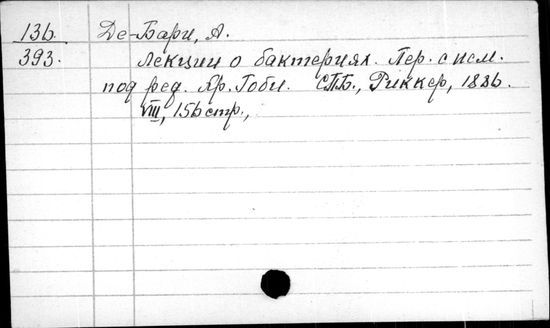 136. Де-Бари, А.
393. Лекции о бактериях. Пер. с нем.
под ред. Хр. Гоби. СПБ., Риккер, 1886.
VIII, 156 стр.,